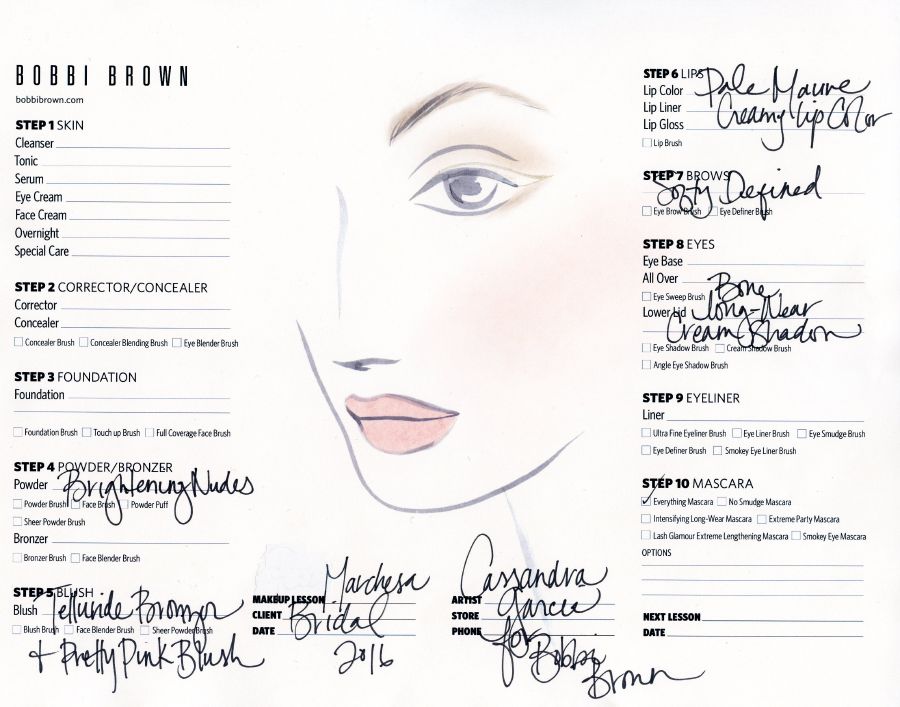 BOBBI BROWN
bobbibrown.com
STEP 1 SKIN
Cleanser
Tonic
Serum
Eye Cream
Face Cream
Overnight
Special Care
STEP 2 CORRECTOR/CONCEALER
Corrector
Concealer
Concealer Brush Concealer Blending Brush Eye Blender Brush
STEP 3 FOUNDATION
Foundation
Foundation Brush Touch up Brush Full Coverage Face Brush
STEP 4 POWDER/BRONZER
Powder Brightening Nudes
Powder Brush Face Brush Powder Puff
Sheer Powder Brush
Bronzer
Bronzer Brush Face Blender Brush
STEP 5 BLUSH
Blush Telluride Bronzer
Blush Brush Face Blender Brush Sheer Powder Brush
+ Pretty Pink Blush
Marchesa
MAKEUP LESSON
CLIENT Bridal
DATE 2016
Cassandra
ARTIST Garcia
STORE for
PHONE Bobbi
Brown
STEP 6 LIPS Pale Mauve
Lip Color Creamy Lip Color
Lip Liner
Lip Gloss
Lip Brush
STEP 7 BROWS
Softy Defined
Eye Brow Brush Eye Definer Brush
STEP 8 EYES
Eye Base
All Over Bone
Eye Sweep Brush
Lower Lid Long-Wear
Cream Shadow
Eye Shadow Brush Cream Shadow Brush
Angle Eye Shadow Brush
STEP 9 EYELINER
Liner
Ultra Fine Eyeliner Brush Eye Liner Brush Eye Smudge Brush
Eye Definer Brush Smokey Eye Liner Brush
STEP 10 MASCARA
Everything Mascara No Smudge Mascara
Intensifying Long-Wear Mascara Extreme Party Mascara
Lash Glamour Extreme Lengthening Mascara Smokey Eye Mascara
OPTIONS
NEXT LESSON
DATE